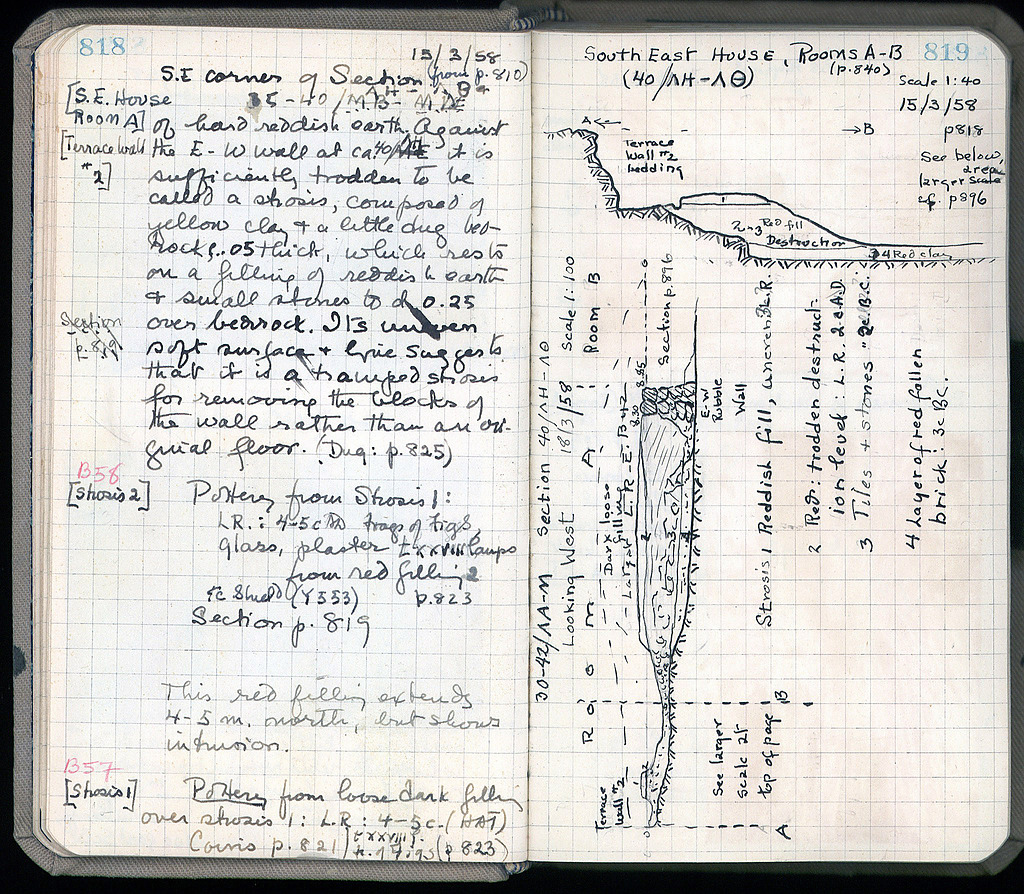 818
15/3/58
S.E corner of Section (from p. 810)
[S.E. House
Room A]
35-40/
of hard reddish earth. Against
[Terrace Wall
#2]
the E-W wall at ca. 40/ it is
sufficiently trodden to be
called a strosis, composed of
yellow clay & a little dug bed-
rock, .05 thick, which rests
on a filling of reddish earth
& small stones to d 0.25
over bedrock. Its uneven
Section
p. 819
soft surface & line suggests
that it is a tramped strosis
for removing the blocks of
the wall rather than an ori-
ginal floor. (Dug: p. 825)
B58
[Strosis 2]
Pottery from Strosis 1:
L.R.: 4-5 c AD frags of figs,
glass, plaster, LXXVIII lamps
from red filling 2
tc Shield (Y553) p. 823
Section p. 819
This red filling extends
4-5 m. north, but shows
intrusion.
B57
[Strosis 1]
Pottery from loose dark filling
over strosis 1: L.R: 4-5 c. (HAT)
Coins p. 821)
(p. 823)
South East House, Rooms A-B 819
(40/ΛH-ΛΘ)
(p. 840)
Scale 1:40
15/3/58
p818
See below,
area
larger scale
cf. p896
A
B
Terrace
Wall #2
bedding
1
2-3 Red fill
Destruction
34 Red clay
30-42/ΛA-M Section 40/ΛH-ΛΘ
Looking West 18/3/58 Scale 1:100
Room A Room B
Dark loose
filling
Section p. 896
8.30
8.85
E-W
Rubble
Wall
Terrace
Wall #2
See larger
scale at
top of page
A
B
Strosis 1 Reddish fill, uneven: L.R.
2 Red: trodden destruct-
ion level: L.R. 2 c AD.
3 Tiles + stones " 2c B.C.
4 Layer of red fallen
brick: 3c BC.